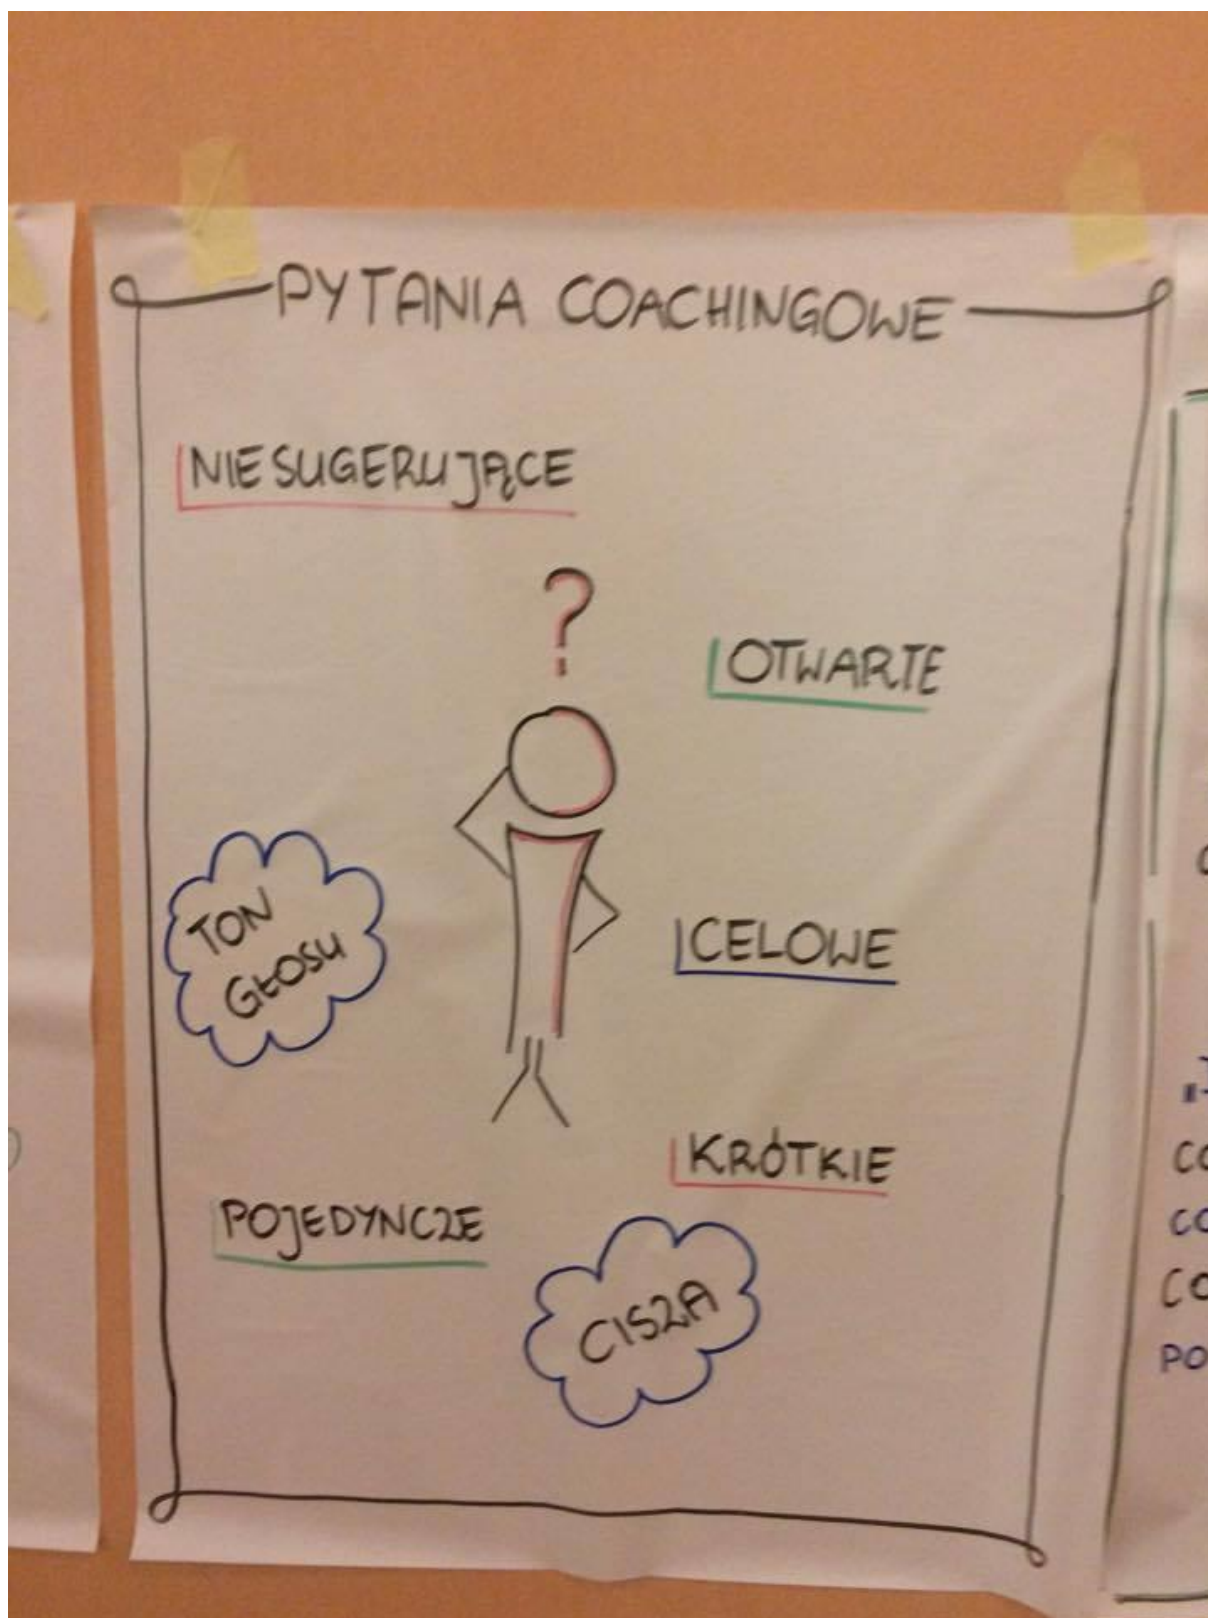 PYTANIA COACHINGOWE
NIESUGERUJĄCE
?
OTWARTE
TON
GŁOSU
CELOWE
KRÓTKIE
POJEDYNCZE
CISZA
CO
CO
CO
PO